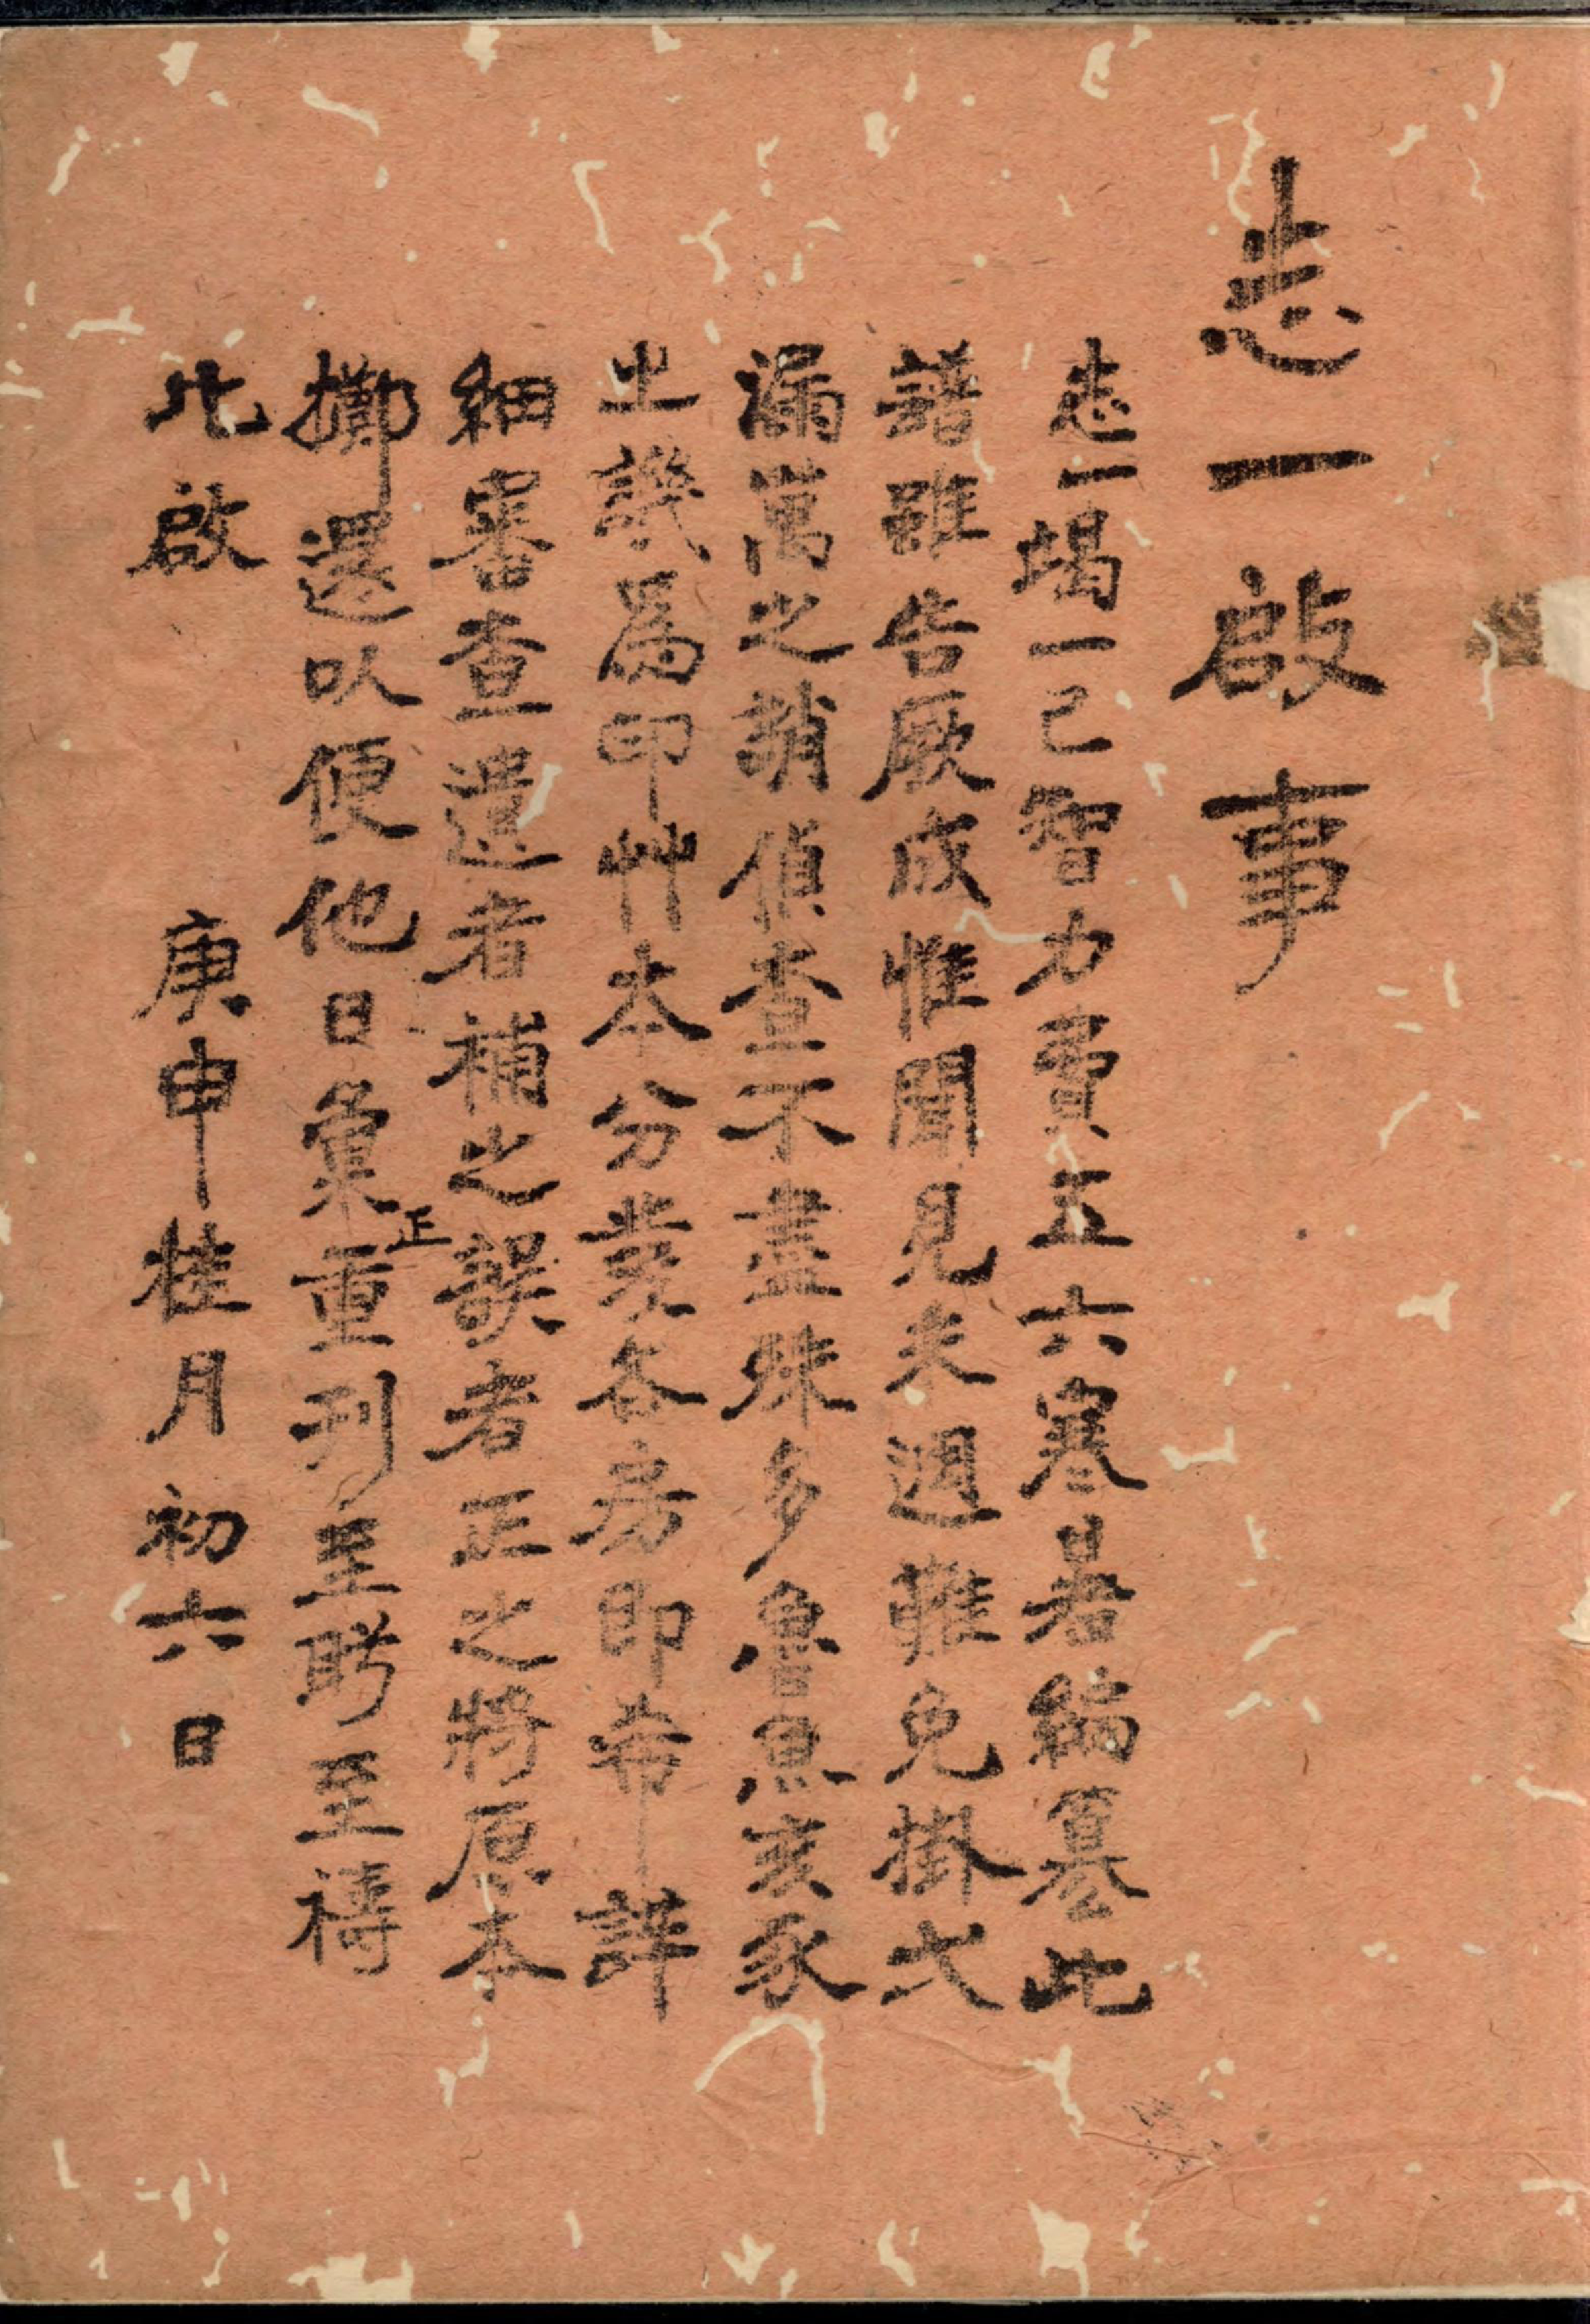 志一啟事
志一竭一己智力費五六寒暑編纂此
譜雖告厥成惟聞見未週難免掛弍
漏萬之誚偵查不盡殊多魯魚亥豕
之譏爲印艸本分裝各房即希詳
細審查遺者補之誤者正之將原本
擲還以便他日彙正重刊至盼至禱
此啟
庚申桂月初六日